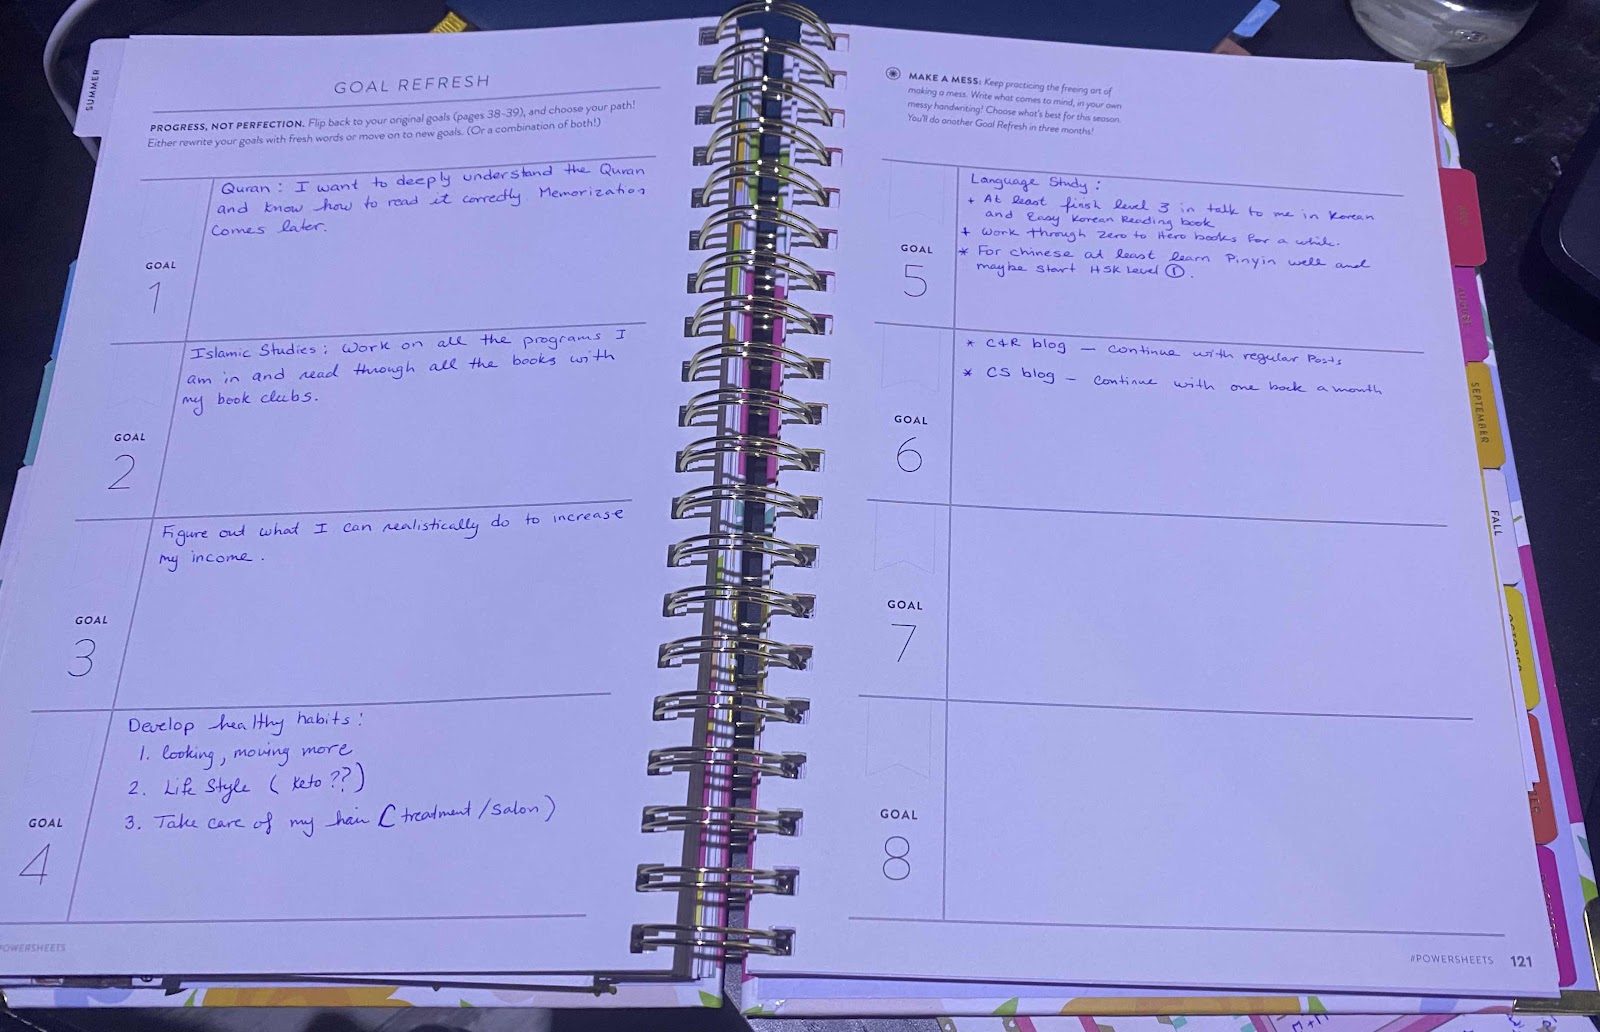 SUMMER
GOAL REFRESH
PROGRESS, NOT PERFECTION. Flip back to your original goals (pages 38-39), and choose your path!
Either rewrite your goals with fresh words or move on to new goals. (Or a combination of both!)
GOAL
1
Quran : I want to deeply understand the Quran
and know how to read it correctly. Memorization
comes later.
GOAL
2
Islamic Studies : Work on all the programs I
am in and read through all the books with
my book clubs.
GOAL
3
Figure out what I can realistically do to increase
my income.
GOAL
4
Develop healthy habits :
1. Cooking, moving more
2. Life Style ( keto ??)
3. Take care of my hair ( treatment / salon )
POWERSHEETS
MAKE A MESS: Keep practicing the freeing art of
making a mess. Write what comes to mind, in your own
messy handwriting! Choose what's best for this season.
You'll do another Goal Refresh in three months!
GOAL
5
Language Study :
+ At least finish level 3 in talk to me in Korean
and Easy Korean Reading book
+ Work through Zero to Hero books for a while.
* For chinese at least learn Pinyin well and
maybe start HSK Level ①.
GOAL
6
* C&R blog — continue with regular Posts
* CS blog — continue with one book a month
GOAL
7
GOAL
8
#POWERSHEETS 121
AUGUST
SEPTEMBER
FALL
OCTOBER